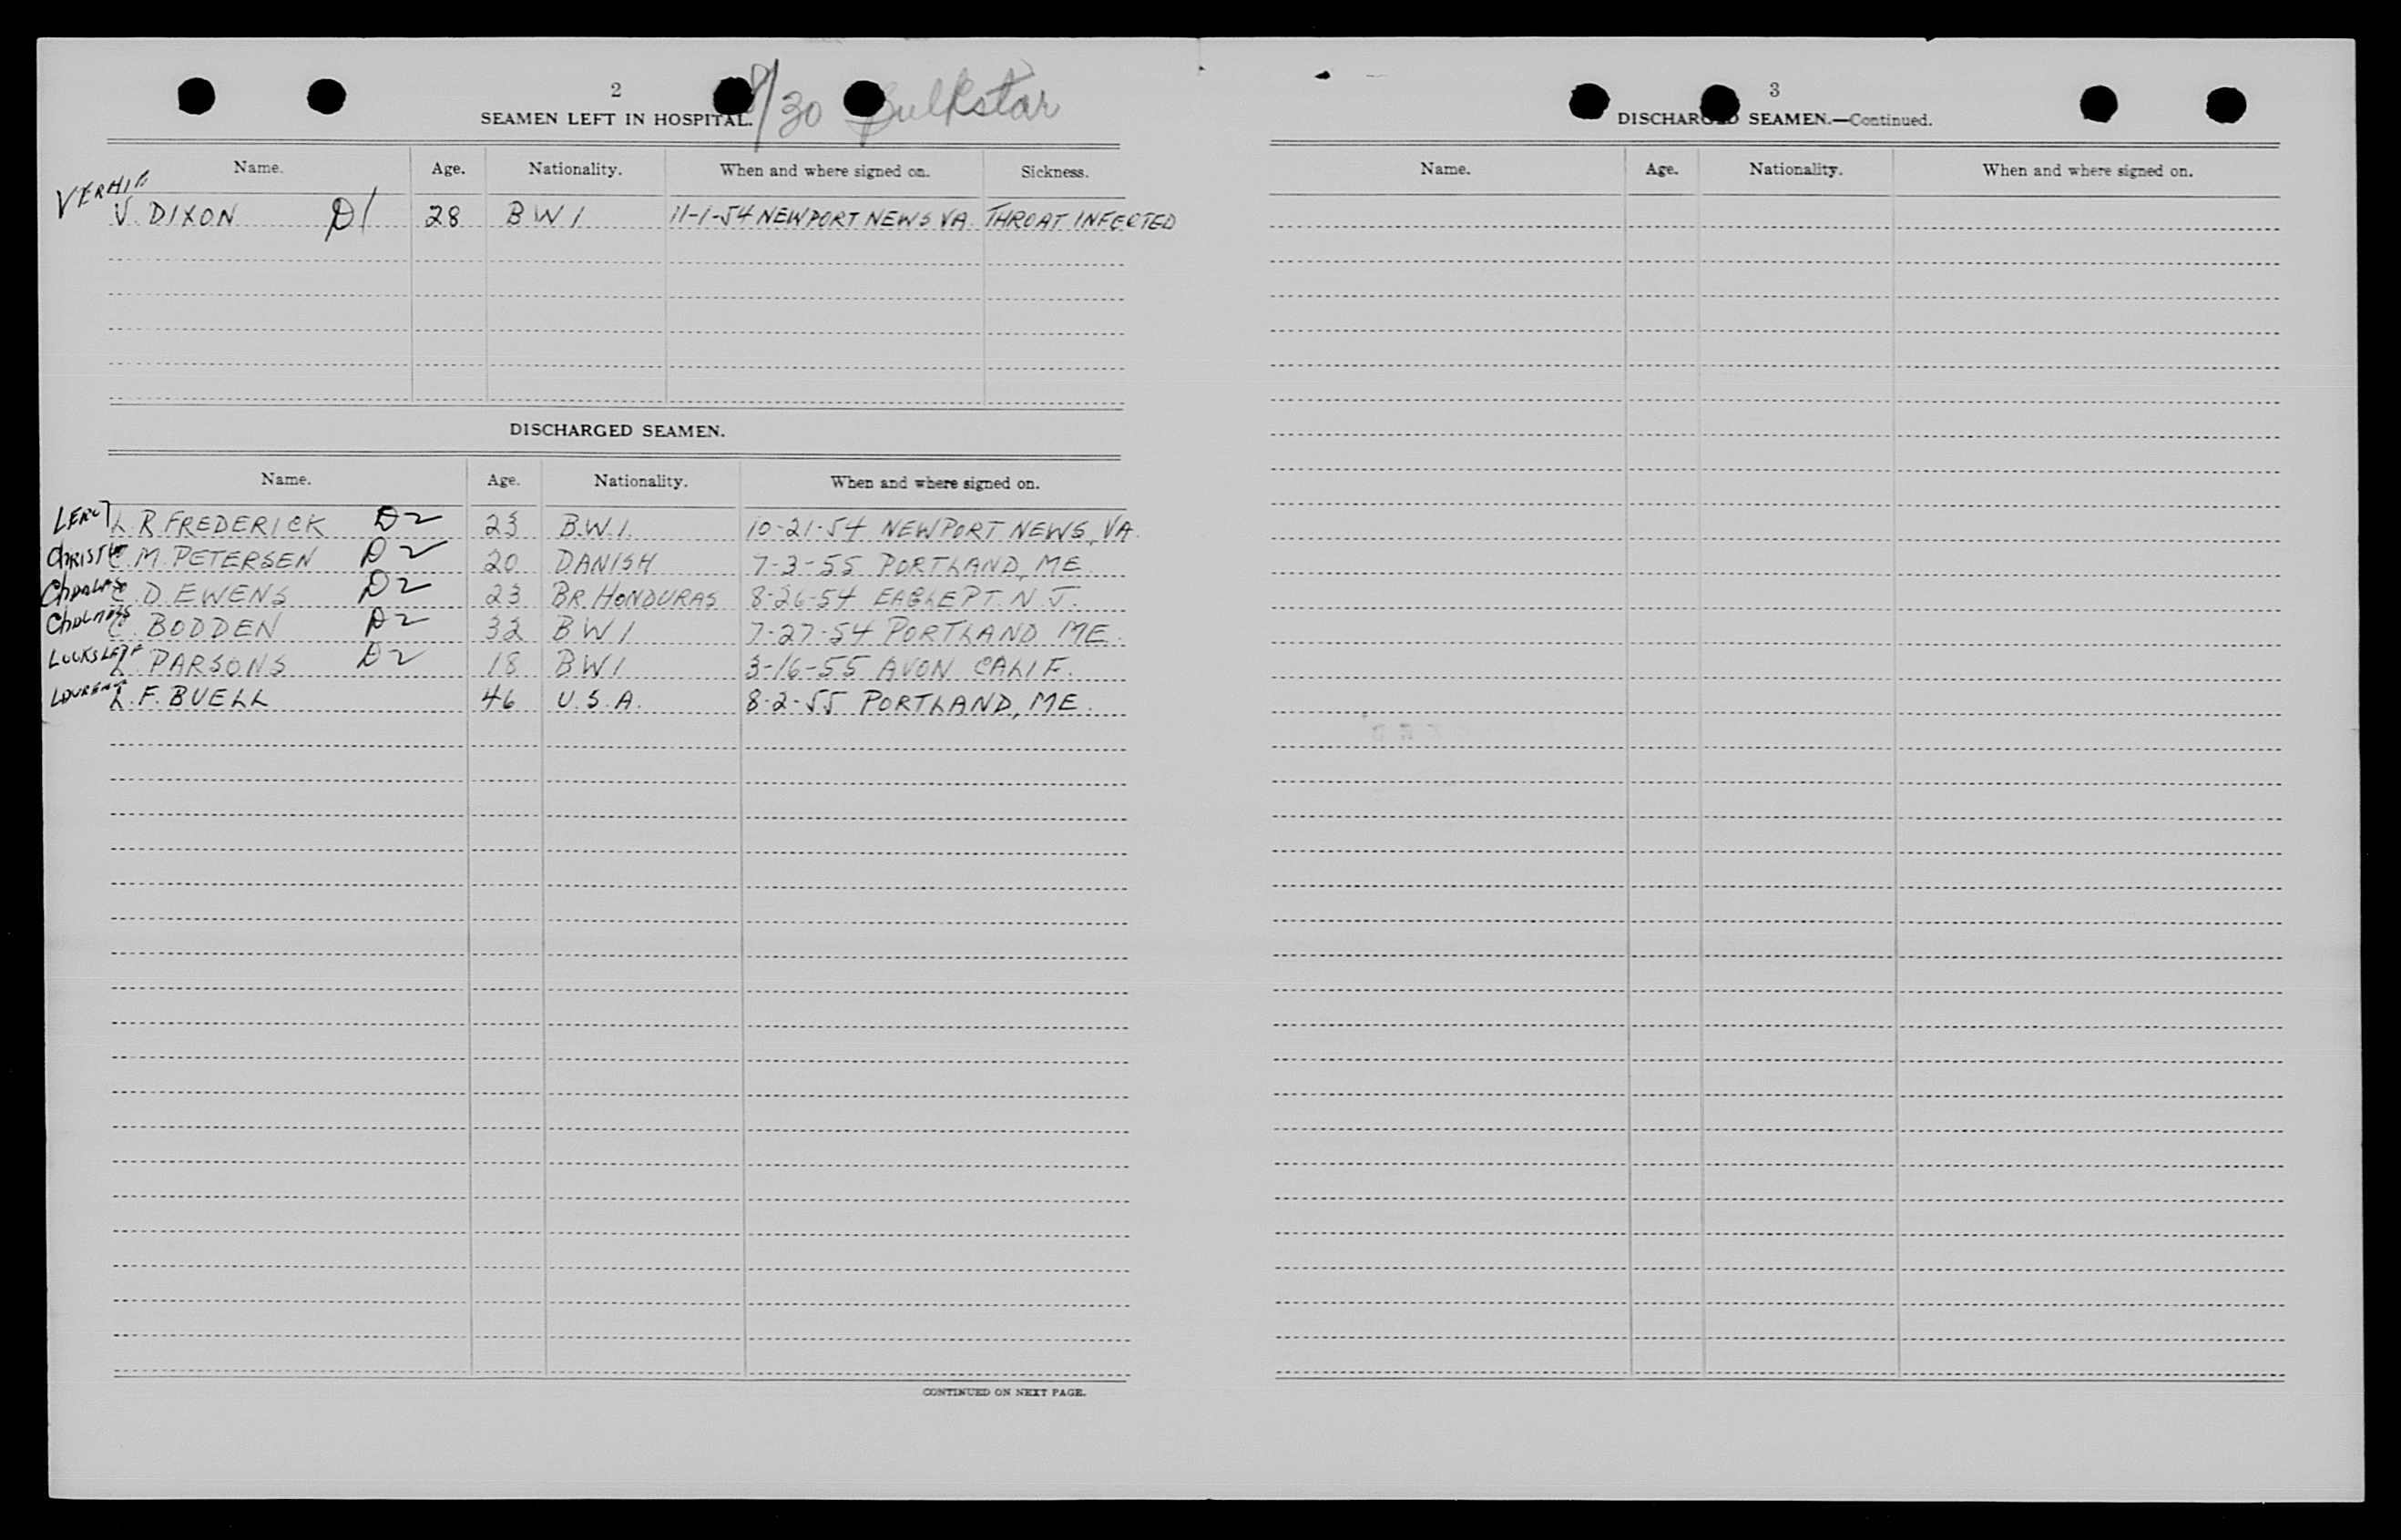 2
8/30 Bulkstar
SEAMEN LEFT IN HOSPITAL.
Name. Age. Nationality. When and where signed on. Sickness.
V. DIXON D1 28 BWI 11-1-54 NEWPORT NEWS VA. THROAT INFECTED
DISCHARGED SEAMEN.
Name. Age. Nationality. When and where signed on.
LEROY L. R. FREDERICK D2 23 B.W.I. 10-21-54 NEWPORT NEWS, VA.
C. M. PETERSEN D2 20 DANISH 7-3-55 PORTLAND, ME.
C. D. EWENS D2 23 BR. HONDURAS 8-26-54 EAGLE PT. N. J.
C. BODDEN D2 32 BWI 7-27-54 PORTLAND ME.
L. PARSONS D2 18 BWI 3-16-55 AVON CALIF.
L. F. BUELL 46 U.S.A. 8-2-55 PORTLAND, ME.
CONTINUED ON NEXT PAGE.
3
DISCHARGED SEAMEN.—Continued.
Name. Age. Nationality. When and where signed on.